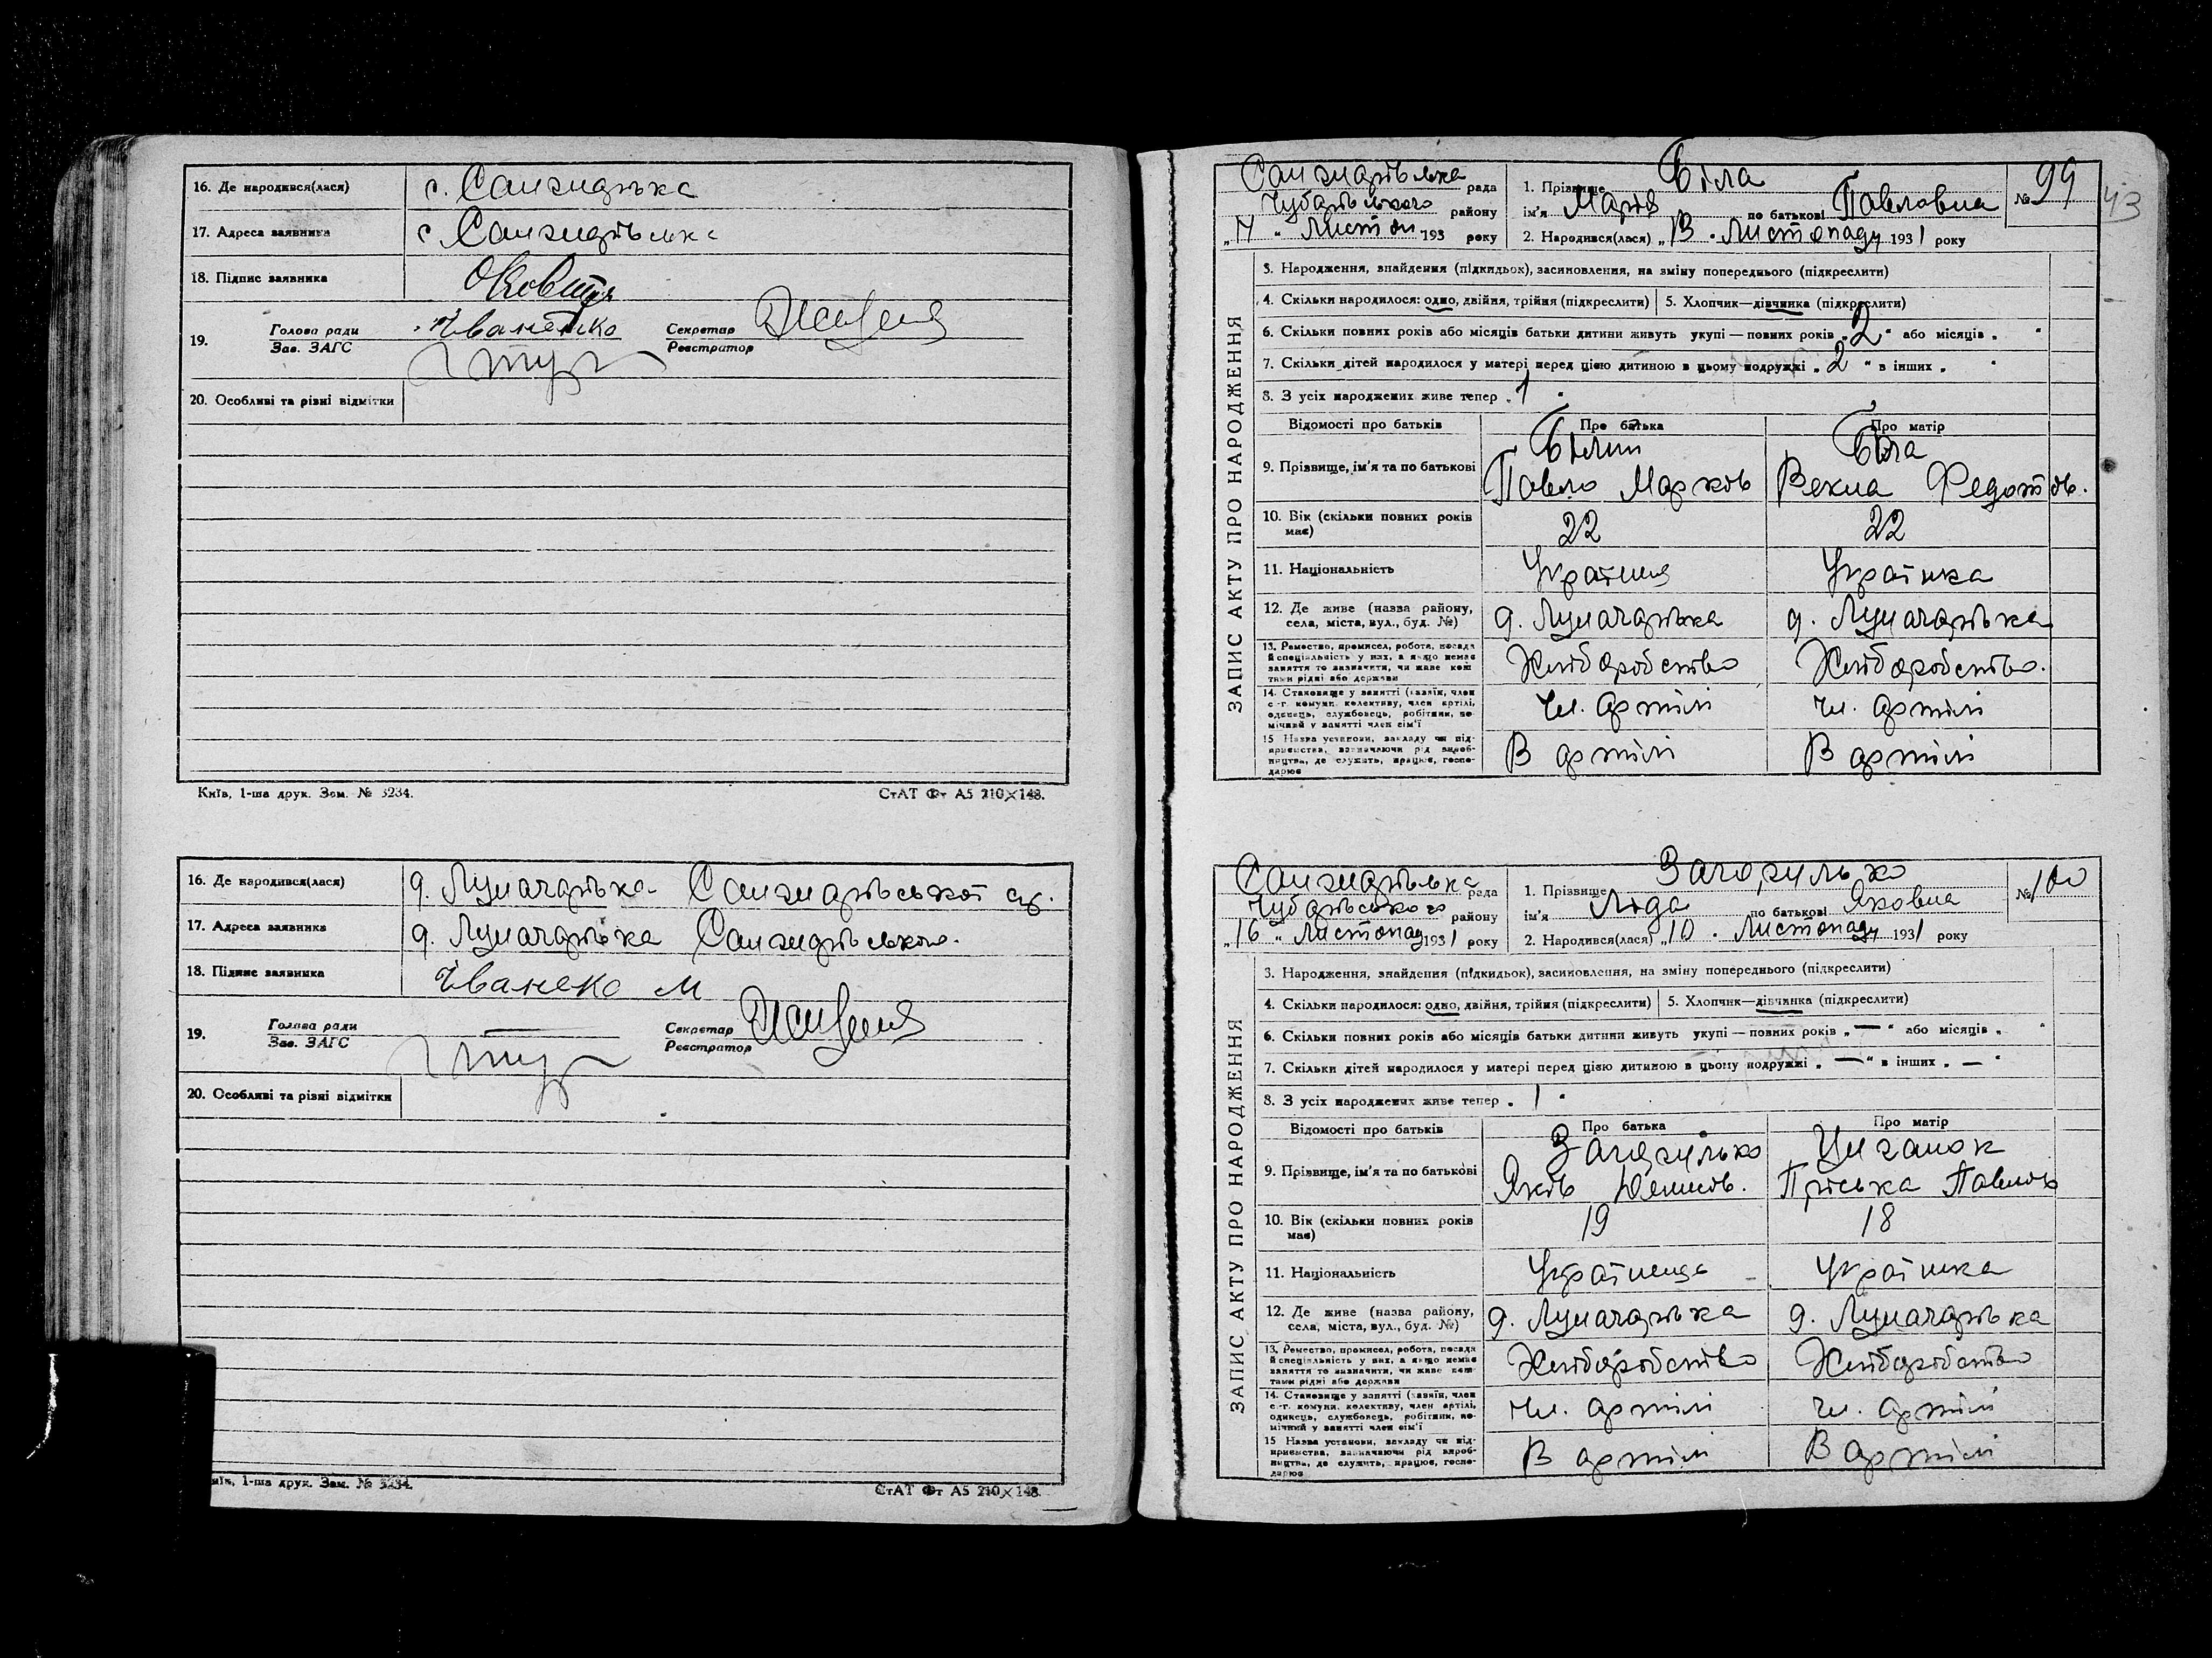 16. Де народився(лася)
17. Адреса заявника
18. Підпис заявника
19. Голова ради Іваненко Секретар
Зав. ЗАГС Реєстратор
20. Особливі та різні відмітки
Київ, 1-ша друк. Зам. № 3234. СтАТ Фт А5 210×148.
16. Де народився(лася)
17. Адреса заявника
18. Підпис заявника Іванеко М
19. Голова ради Секретар
Зав. ЗАГС Реєстратор
20. Особливі та різні відмітки
иїв, 1-ша друк. Зам. № 3234. СтАТ Фт А5 210×148.
рада 1. Прізвище Біла № 99
43
Чубарівського району ім'я Марія по батькові Павловна
193 року 2. Народився(лася) „13. Листопаду 1931 року
ЗАПИС АКТУ ПРО НАРОДЖЕННЯ
3. Народження, знайдення (підкидьок), засиновлення, на зміну попереднього (підкреслити)
4. Скільки народилося: одно, двійня, трійня (підкреслити) 5. Хлопчик—дівчинка (підкреслити)
6. Скільки повних років або місяців батьки дитини живуть укупі — повних років „2“ або місяців „ “
7. Скільки дітей народилося у матері перед цією дитиною в цьому подружжі „2“ в інших „ “
8. З усіх народжених живе тепер „1“
Відомості про батьків Про батька Про матір
Білий Біла
9. Прізвище, ім'я та по батькові Павло Марков Векла Федотов.
10. Вік (скільки повних років має) 22 22
11. Національність Українка
12. Де живе (назва району, села, міста, вул., буд. №) д. Луначарівка д. Луначарівка
13. Ремество, промисел, робота, посада й спеціальність у них, а якщо немає заняття то зазначити, чи живе коштами рідні або держави Хліборобство Хліборобство.
14. Становище у занятті (хазяїн, член с.-г. комуни, колективу, член артілі, одинець, службовець, робітник, помічний у занятті член сім'ї Чл. артілі Чл. артілі
15 Назва установи, закладу чи підприємства, зазначаючи рід виробництва, де служить, працює, господарює В артілі В артілі
рада 1. Прізвище Загорулько № 100
Чубарівського району ім'я Ліда по батькові Яковна
„16“ Листопаду 1931 року 2. Народився(лася) „10. Листопаду 1931 року
ЗАПИС АКТУ ПРО НАРОДЖЕННЯ
3. Народження, знайдення (підкидьок), засиновлення, на зміну попереднього (підкреслити)
4. Скільки народилося: одно, двійня, трійня (підкреслити) 5. Хлопчик—дівчинка (підкреслити)
6. Скільки повних років або місяців батьки дитини живуть укупі — повних років „—“ або місяців „ “
7. Скільки дітей народилося у матері перед цією дитиною в цьому подружжі „—“ в інших „—“
8. З усіх народжених живе тепер „1“
Відомості про батьків Про батька Про матір
Загорулько Циганок
9. Прізвище, ім'я та по батькові Яків Пріська Павлов
10. Вік (скільки повних років має) 19 18
11. Національність Українка
12. Де живе (назва району, села, міста, вул., буд. №) д. Луначарівка д. Луначарівка
13. Ремество, промисел, робота, посада й спеціальність у них, а якщо немає заняття то зазначити, чи живе коштами рідні або держави Хліборобство Хліборобство
14. Становище у занятті (хазяїн, член с.-г. комуни, колективу, член артілі, одинець, службовець, робітник, помічний у занятті член сім'ї Чл. артілі Чл. артілі
15 Назва установи, закладу чи підприємства, зазначаючи рід виробництва, де служить, працює, господарює В артілі В артілі